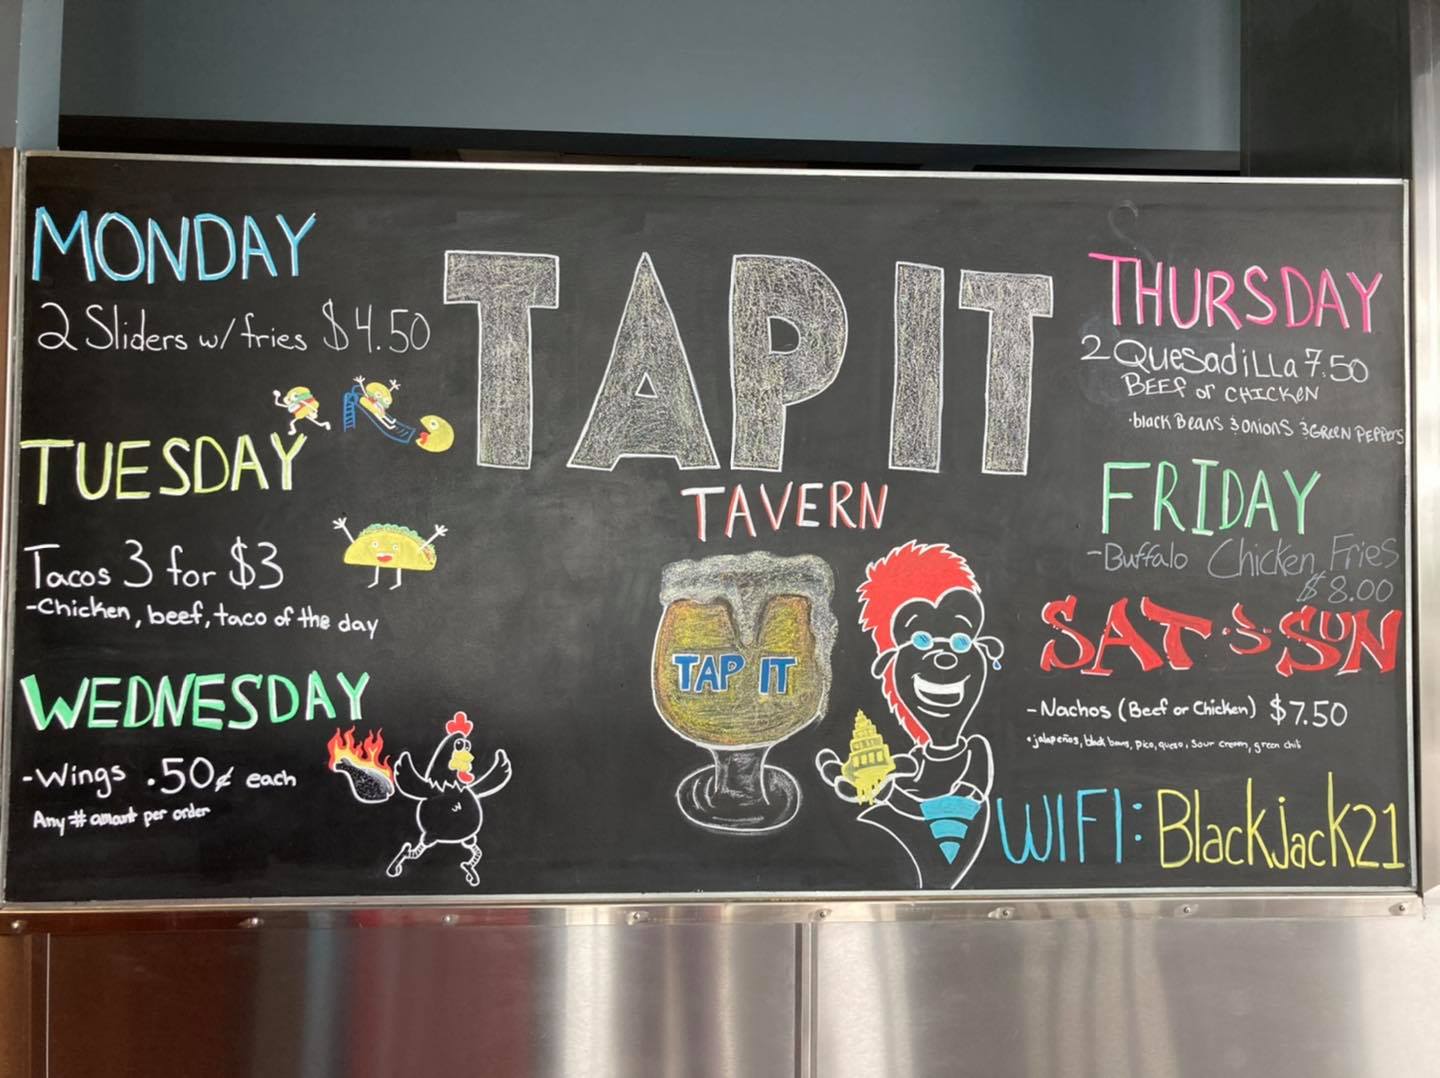 MONDAY
2 Sliders w/ fries $4.50
TUESDAY
Tacos 3 for $3
-Chicken, beef, taco of the day
WEDNESDAY
-Wings .50¢ each
Any # amount per order
TAP IT
TAVERN
TAP IT
THURSDAY
2 QUesadiLLa 7.50
BEEf or CHICKEN
•black BEANS & ONIONS & GREEN PEPPERS
FRIDAY
-Buffalo Chicken Fries
$8.00
SAT & SUN
-Nachos (Beef or Chicken) $7.50
•jalapeños, black beans, pico, queso, Sour cream, green chili
WIFI: BlackJack21